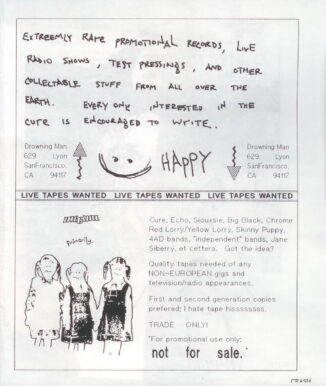 EXTREEMLY RARE PROMOTIONAL RECORDS, LIVE
RADIO SHOWS, TEST PRESSINGS, AND OTHER
COLLECTABLE STUFF FROM ALL OVER THE
EARTH. EVERY ONE INTERESTED IN THE
CURE IS ENCOURAGED TO WRITE.
Drowning Man
629 Lyon
SanFrancisco,
CA 94117
HAPPY
Drowning Man
629 Lyon
SanFrancisco,
CA 94117
LIVE TAPES WANTED LIVE TAPES WANTED LIVE TAPES WANTED
primarily
Cure, Echo, Siouxsie, Big Black, Chrome
Red Lorry/Yellow Lorry, Skinny Puppy,
4AD bands, "independent" bands, Jane
Siberry, et cetters. Got the idea?
Quality tapes needed of any
NON-EUROPEAN gigs and
television/radio appearances.
First and second generation copies
prefered; I hate tape hisssssssss.
TRADE ONLY!
"For promotional use only;
not for sale."
CRASH